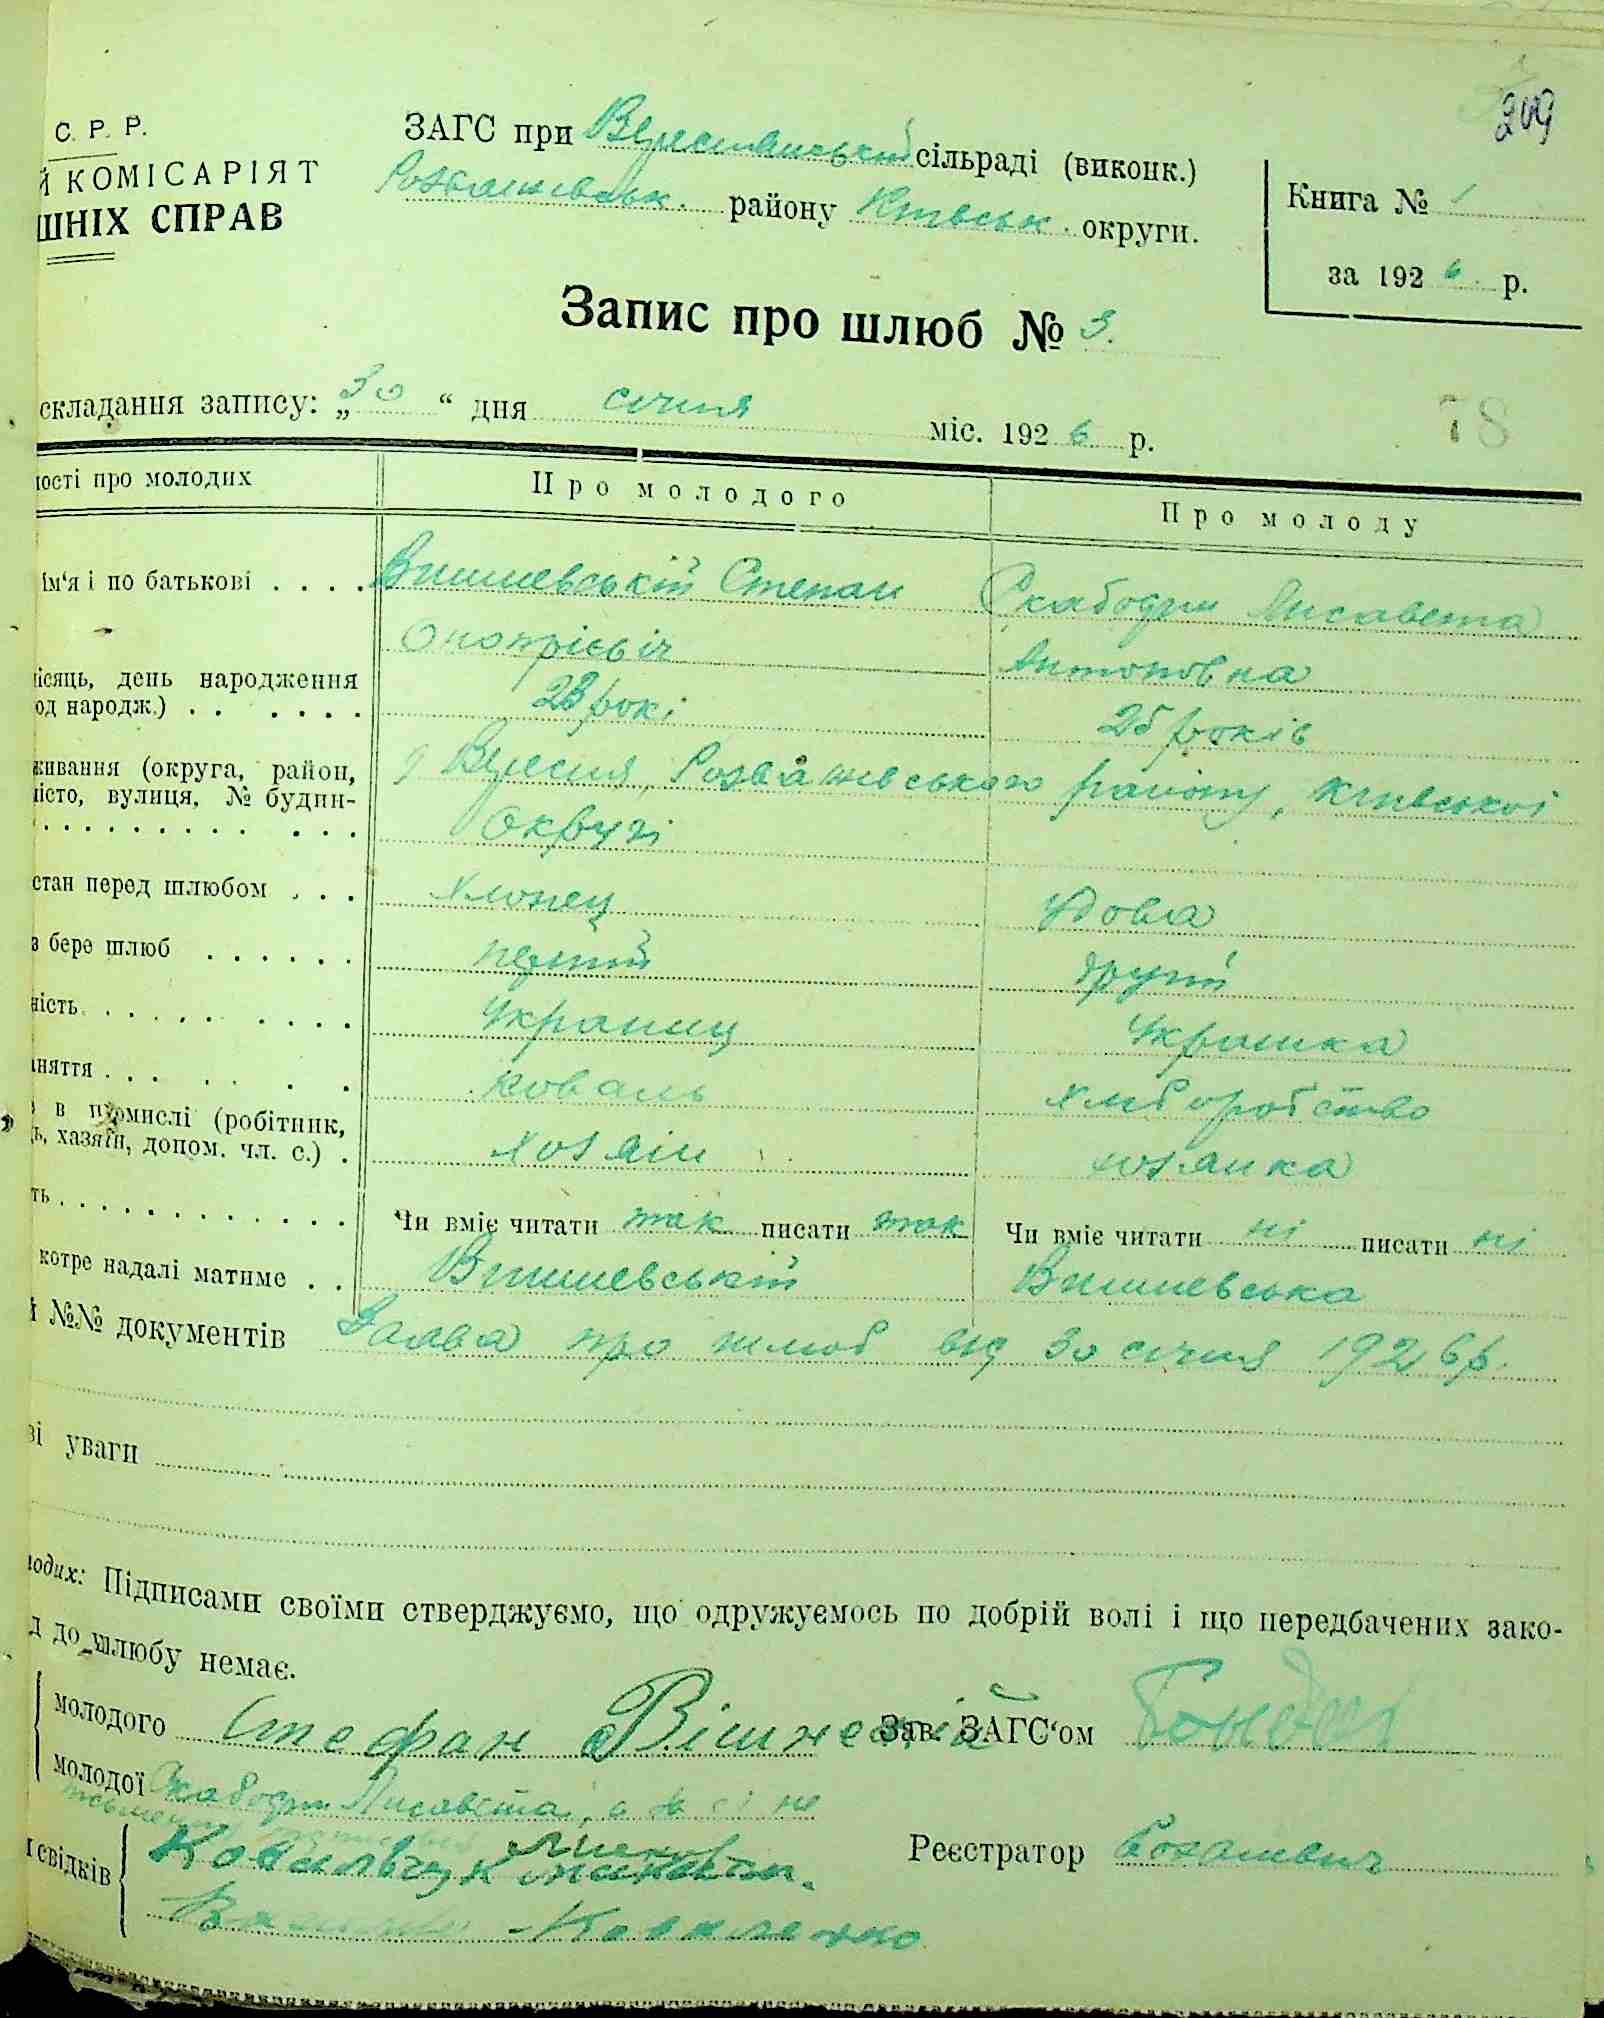 209
С. Р. Р.
Й КОМІСАРІЯТ
ШНІХ СПРАВ
ЗАГС при Вереснянській сільраді (виконк.)
Розважевськ. району Київськ. округи.
Книга № 1
за 1926 р.
Запис про шлюб № 3.
складання запису: „30“ дня січня міс. 1926 р.
78
ності про молодих Про молодого Про молоду
ім‘я і по батькові . . . . Вишневській Степан Скабодзин Лисавета
Онопрієвіч Антоновна
місяць, день народження
од народж.) . . . . . . 23 рокі 25 років
живання (округа, район, Вересня, Розважевського району, Київської
місто, вулиця, № будин-
Округі
стан перед шлюбом . . . Хлопец Удова
з бере шлюб . . . . . . перший другий
ність . . . . . . . . . Украинц Украинка
аняття . . . . . . . Коваль Хлиборобство
в промислі (робітник,
ь, хазяїн, допом. чл. с.) . Хозяїн хозяика
ть . . . . . . . . . . . . Чи вміє читати так писати так Чи вміє читати ні писати ні
котре надалі матиме . . Вишневській Вишневська
й №№ документів Заява про шлюб від 30 січня 1926 р.
ві уваги
лодих: Підписами своїми стверджуємо, що одружуємось по добрій волі і що передбачених зако-
д до шлюбу немає.
молодого Стефан Вішневскій Зав. ЗАГС‘ом Бондар
молодої Лисавета, а за її не
свідків Ковальчук
Реєстратор
Василь Коваленко